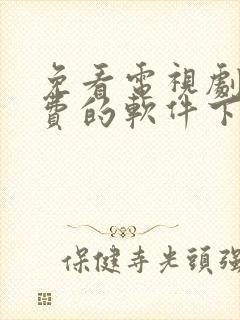 免看電視劇
費的軟件下
保健寺光頭強